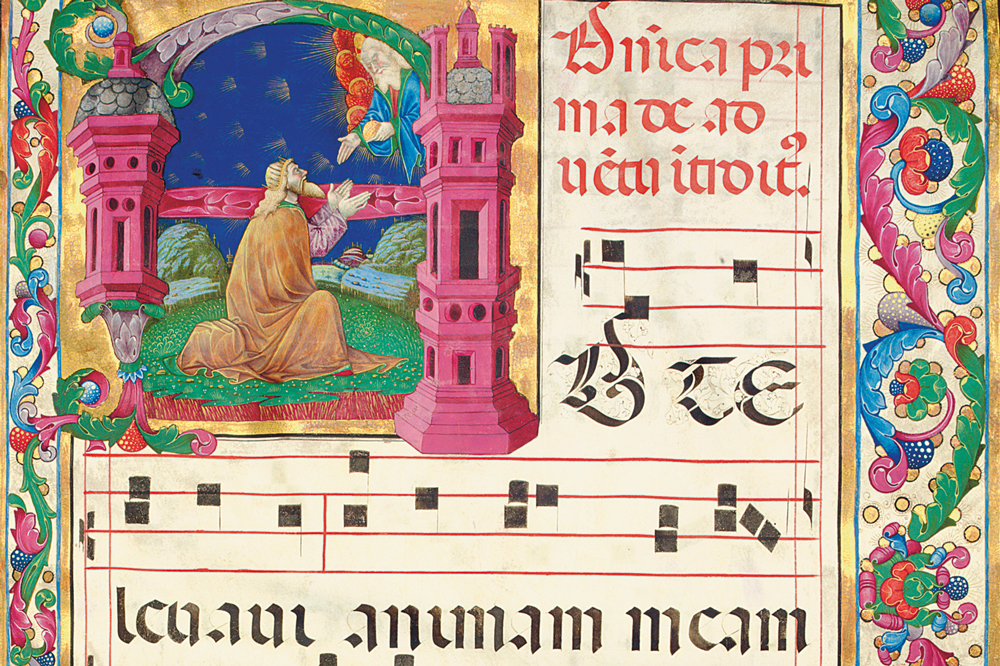 Dn̄ica pri
ma de ad
uētu ītroitꝰ.
AD TE
leuaui animam meam